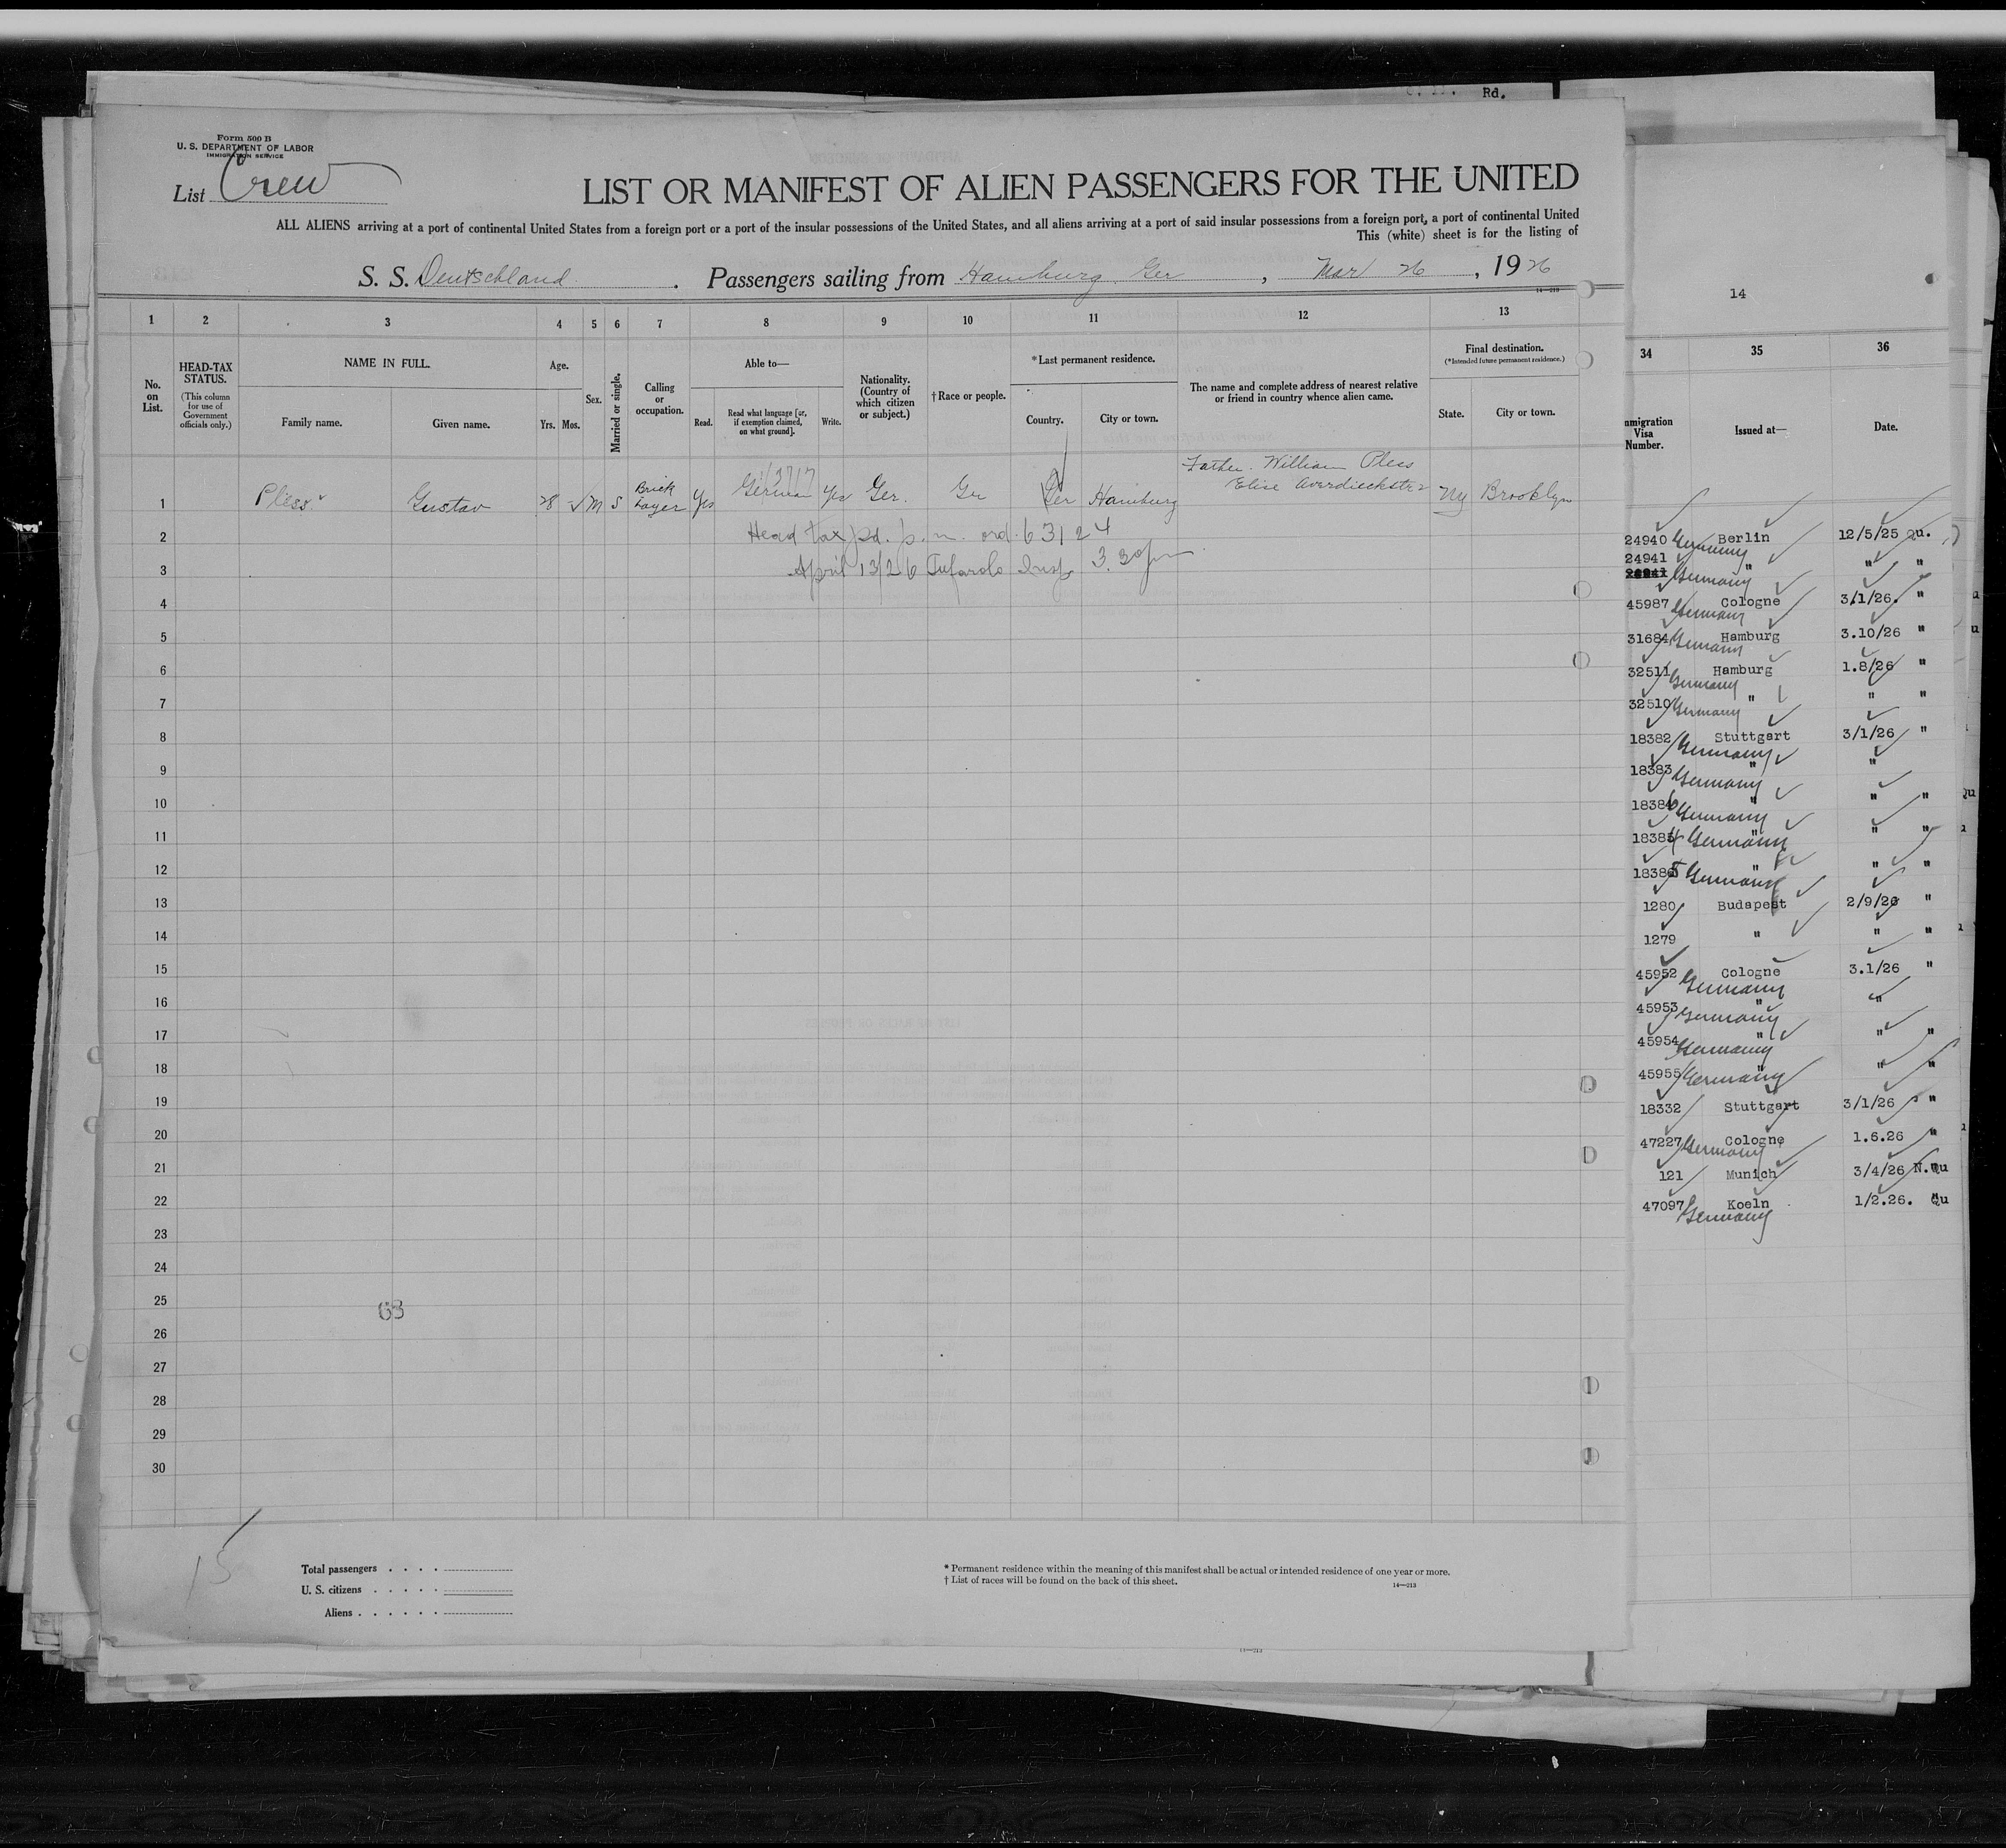 Rd.
Form 500 B
U. S. DEPARTMENT OF LABOR
IMMIGRATION SERVICE
List Crew
LIST OR MANIFEST OF ALIEN PASSENGERS FOR THE UNITED
ALL ALIENS arriving at a port of continental United States from a foreign port or a port of the insular possessions of the United States, and all aliens arriving at a port of said insular possessions from a foreign port, a port of continental United
This (white) sheet is for the listing of
S. S. Deutschland. Passengers sailing from Hamburg Ger, Mar 26, 1926
14—213
1 2 3 4 5 6 7 8 9 10 11 12 13
No. on List.
HEAD-TAX STATUS.
(This column for use of Government officials only.)
NAME IN FULL.
Family name. Given name.
Age.
Yrs. Mos.
Sex.
Married or single.
Calling or occupation.
Able to—
Read. Read what language [or, if exemption claimed, on what ground]. Write.
Nationality. (Country of which citizen or subject.)
†Race or people.
*Last permanent residence.
Country. City or town.
The name and complete address of nearest relative or friend in country whence alien came.
Final destination.
(*Intended future permanent residence.)
State. City or town.
1 Pless Gustav 28 M S Brick Layer Yes German Yes Ger. Gr Ger Hamburg Father. William Pless Elise Averdieckstr 2 NY Brooklyn
2 Head tax pd. p.m. ord. 63124
3 April 13/26 Tufarolo Insp 3.30pm
4
5
6
7
8
9
10
11
12
13
14
15
16
17
18
19
20
21
22
23
24
25
26
27
28
29
30
63
15
Total passengers
U. S. citizens
Aliens
* Permanent residence within the meaning of this manifest shall be actual or intended residence of one year or more.
† List of races will be found on the back of this sheet.
14—213
14
34 35 36
mmigration Visa Number. Issued at— Date.
24940 Germany Berlin 12/5/25 Qu.
24941 Germany " " "
45987 Germany Cologne 3/1/26. "
31684 Germany Hamburg 3.10/26 "
32511 Germany Hamburg 1.8/26 "
32510 Germany " " "
18382 Germany Stuttgart 3/1/26 "
18383 Germany " "
18386 Germany " " "
18384 Germany " " "
18385 Germany " " "
1280 Budapest 2/9/26 "
1279 " " "
45952 Germany Cologne 3.1/26 "
45953 Germany " "
45954 Germany " " "
45955 Germany " "
18332 Stuttgart 3/1/26 "
47227 Germany Cologne 1.6.26 "
121 Munich 3/4/26 N.Qu
47097 Germany Koeln 1/2.26. Qu